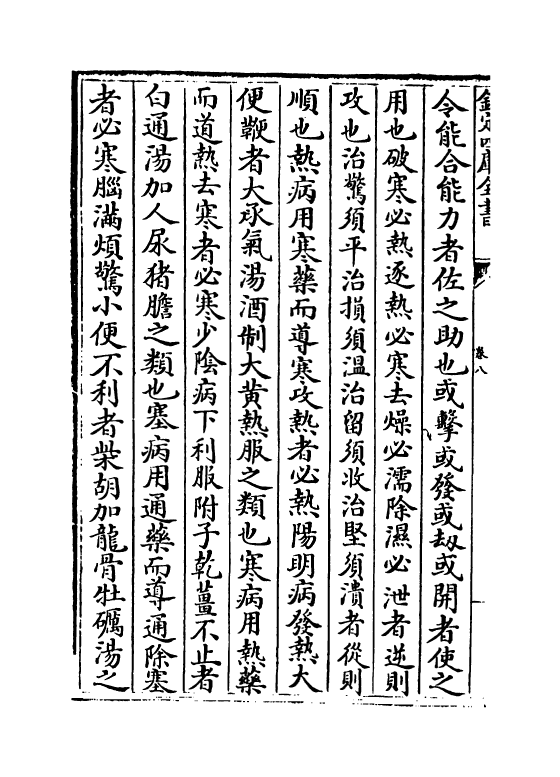 欽定四庫全書
卷八
令能合能力者佐之助也或擊或發或刼或開者使之
用也破寒必熱逐熱必寒去燥必濡除濕必泄者逆則
攻也治驚須平治損須溫治留須收治堅須潰者從則
順也熱病用寒藥而導寒攻熱者必熱陽明病發熱大
便鞕者大承氣湯酒制大黃熱服之類也寒病用熱藥
而道熱去寒者必寒少陰病下利服附子乾薑不止者
白通湯加人尿猪膽之類也塞病用通藥而導通除塞
者必寒腦滿煩驚小便不利者柴胡加龍骨牡礪湯之